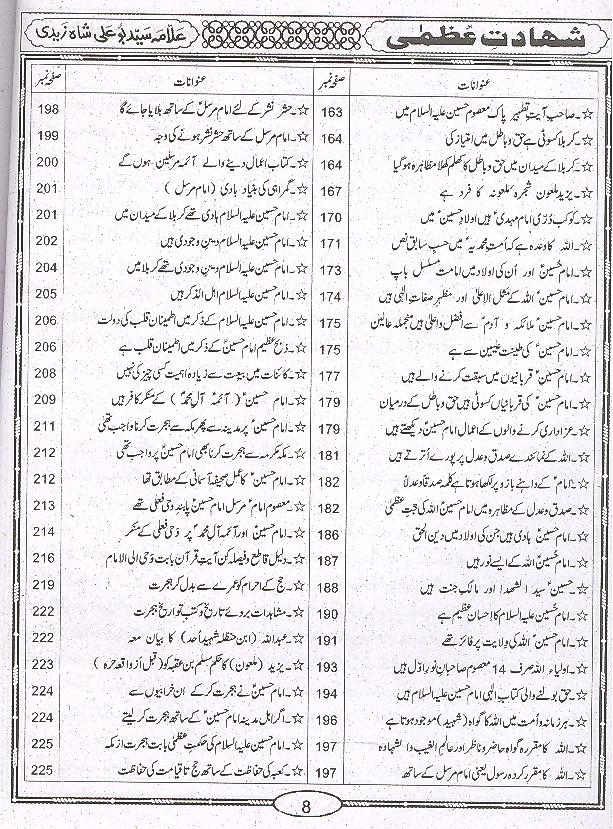 شہادتِ عُظمیٰ
علامہ سید بو علی شاہ زیدی
عنوانات صفحہ نمبر
☆۔ صاحب آیتِ تطہیر پاک معصوم حسین علیہ السلام ہیں 163
☆۔ کربلا کسوٹی ہے حق و باطل میں امتیاز کی 164
☆۔ کربلا کے میدان میں حق و باطل کا کھلم کھلا مظاہرہ ہو گیا 164
☆۔ یزید ملعون شجرہ ملعونہ کا فرد ہے 167
☆۔ کوکب دُرّی امام مہدیؑ ہیں اولادِ حسینؑ میں 170
☆۔ اللہ کا وعدہ ہے کہ اُمتِ محمدیہؐ میں حسب سابق نص 171
☆۔ امام حسینؑ اور اُن کی اولاد میں امامت مسلسل باپ 173
☆۔ امام حسینؑ اللہ کے مثل الاعلیٰ اور مظہر صفاتِ الٰہی ہیں 174
☆۔ امام حسینؑ ملائکہ و آدمؑ سے افضل و اعلیٰ ہیں منجملہ عالین 175
☆۔ امام حسینؑ کی طینت علیین سے ہے 175
☆۔ امام حسینؑ قربانیوں میں سبقت کرنے والے ہیں 177
☆۔ امام حسینؑ کی قربانیاں کسوٹی ہیں حق و باطل کے درمیان 179
☆۔ عزاداری کرنے والوں کے اعمال امام حسینؑ دیکھتے ہیں 179
☆۔ اللہ کے نمائندے صدق و عدل پر پورے اُترتے ہیں 181
☆۔ امامؑ کے داہنے بازو پر لکھا ہوتا ہے کلمہ صدقاً و عدلاً 182
☆۔ صدق و عدل کے مظاہرہ میں امام حسینؑ اللہ کی حجتِ عظمیٰ 182
☆۔ امام حسینؑ ہادی ہیں جن کی اولاد میں دین الحق 186
☆۔ امام حسینؑ اللہ کے ایسے نور ہیں 187
☆۔ حسینؑ سید الشھدا اور مالک جنت ہیں 188
☆۔ امام حسین علیہ السلام کا احسانِ عظیم ہے 190
☆۔ امام حسینؑ اللہ کی ولایت پر فائز تھے 191
☆۔ اولیاء اللہ صرف 14 معصوم صاحبانِ نورِ اوّل ہیں 193
☆۔ حق بولنے والی کتابِ الٰہی امام حسین علیہ السلام ہیں 194
☆۔ ہر زمانہ و اُمت میں اللہ کا گواہ (شہید) موجود ہوتا ہے 196
☆۔ اللہ کا مقررہ گواہ حاضر و ناظر اور عالم الغیب و الشھادہ 197
☆۔ اللہ کا مقرر کردہ رسول یعنی امام مرسل کے ساتھ 197
عنوانات صفحہ نمبر
☆۔ حشر نشر کے لئے امام مرسلؑ کے ساتھ بلایا جائے گا 198
☆۔ امام مرسل کے ساتھ حشر نشر ہونے کی وجہ 199
☆۔ کتابِ اعمال دینے والے آئمہ مرسلین ہوں گے 200
☆۔ گمراہی کی بنیاد ہادی (امام مرسل) 201
☆۔ امام حسین علیہ السلام ہادی تھے کربلا کے میدان میں 201
☆۔ امام حسین علیہ السلام دینِ وجودی ہیں 202
☆۔ امام حسین علیہ السلام دینِ وجودی تھے کربلا میں 204
☆۔ امام حسین علیہ السلام اہل الذکر ہیں 205
☆۔ امام حسین علیہ السلام کے ذکر میں اطمینانِ قلب کی دولت 206
☆۔ ذبحِ عظیم امام حسینؑ کے ذکر میں اطمینانِ قلب ہے 206
☆۔ کائنات میں بیعت سے زیادہ اہمیت کسی چیز کی نہیں 208
☆۔ امام حسینؑ (آئمہ آلِ محمدؐ) کے منکر کافر ہیں 209
☆۔ امام حسینؑ پر مدینہ سے پھر مکہ سے ہجرت کرنا واجب تھی 211
☆۔ مکہ مکرمہ سے ہجرت کرنا بھی امام حسینؑ پر واجب تھی 212
☆۔ امام حسینؑ کا عمل صحیفہ آسمانی کے مطابق تھا 212
☆۔ معصوم امامؑ مرسل امام حسینؑ پابندِ وحی فعلی تھے 213
☆۔ امام حسینؑ اور آئمہ آلِ محمدؐ پر وحی فعلی کے منکر 214
☆۔ دلیل قاطع و فیصلہ کن آیتِ قرآن بابت وحی الی الامام 216
☆۔ حج کے احرام کو عمرے سے بدل کر ہجرت 219
☆۔ مشاہدات بروئے تاریخ و کتب تواریخ ہجرت 222
☆۔ عبداللہ (ابن حنظلہ شہید اُحد) کا بیان معہ 222
☆۔ یزید (ملعون) کا حکم مسلم بن عقبہ کو (قبل از واقعہ حرہ) 223
☆۔ امام حسینؑ نے ہجرت کر کے ان خرابیوں سے 224
☆۔ اگر اہلِ مدینہ امام حسینؑ کے ساتھ ہجرت کر لیتے 224
☆۔ امام حسین علیہ السلام کی حکمتِ عظمیٰ بابت ہجرت از مکہ 225
☆۔ کعبہ کی حفاظت کے ساتھ حج تا قیامت کی حفاظت 225
8